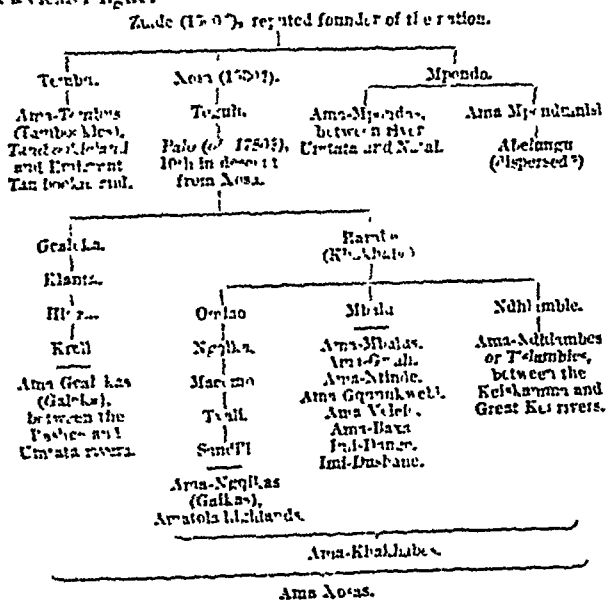 Zuide (1500?), reputed founder of the nation.
Tembu.
Xosa (1530?).
Mpondo.
Ama-Tembus
(Tambookies),
Tambookieland
and Emigrant
Tambookieland.
Toguh.
Palo (ob. 1750?),
10th in descent
from Xosa.
Ama-Mpondas,
between river
Umtata and Natal.
Ama Mpondumisi
Abelungu
(dispersed?)
Gcaleka.
Klanta.
Kreli
Ama Gcalekas
(Galeka),
between the
Bashee and
Umtata rivers.
(Khakhabe)
Omlao
Ngqika.
Macomo
Tyali.
Sandili
Ama-Ngqikas
(Gaikas),
Amatola highlands.
Mbala
Ama-Mbalas.
Ama-Gwali.
Ama-Ntinde.
Ama Gqunukwebi.
Ama Velelo.
Ama-Baxa
Imi-Dange.
Imi-Dushane.
Ndhlambe.
Ama-Ndhlambes
or Tslambies,
between the
Keiskamma and
Great Kei rivers.
Ama-Khakhabes.
Ama Xosas.